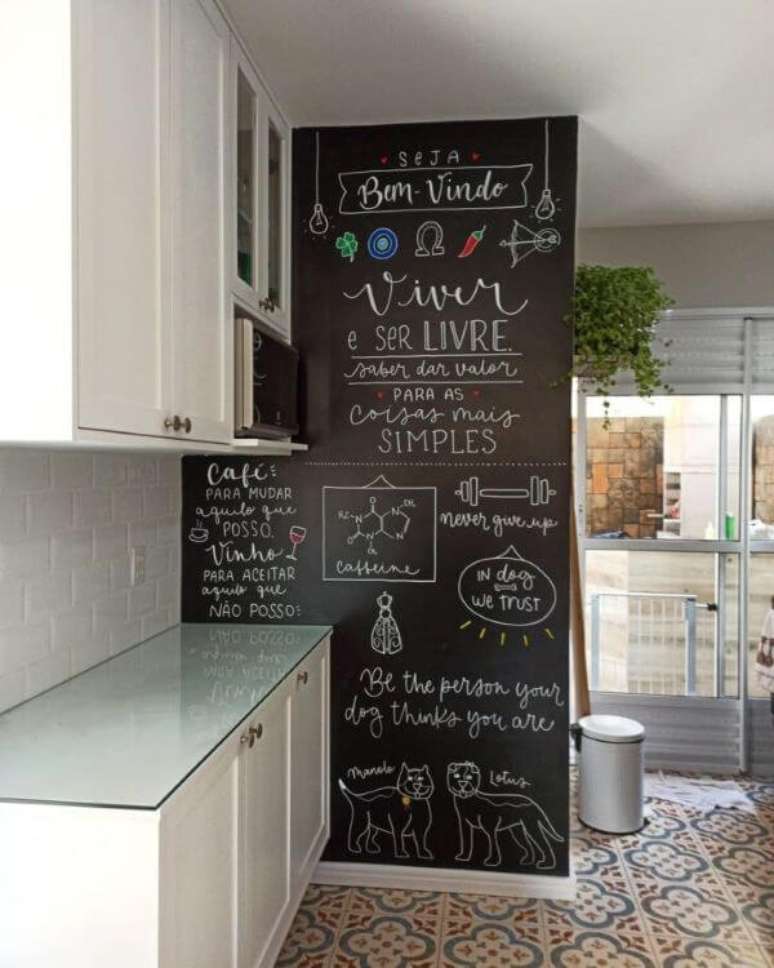 SEJA
Bem-Vindo
Viver
e SER LIVRE.
saber dar valor
PARA AS
coisas mais
SIMPLES
Café
PARA MUDAR
aquilo que
POSSO.
Vinho
PARA ACEITAR
aquilo que
NÃO POSSO
caffeine
never give up
IN dog
We TRUST
Be the person your
dog thinks you are
Manolo
Lotus